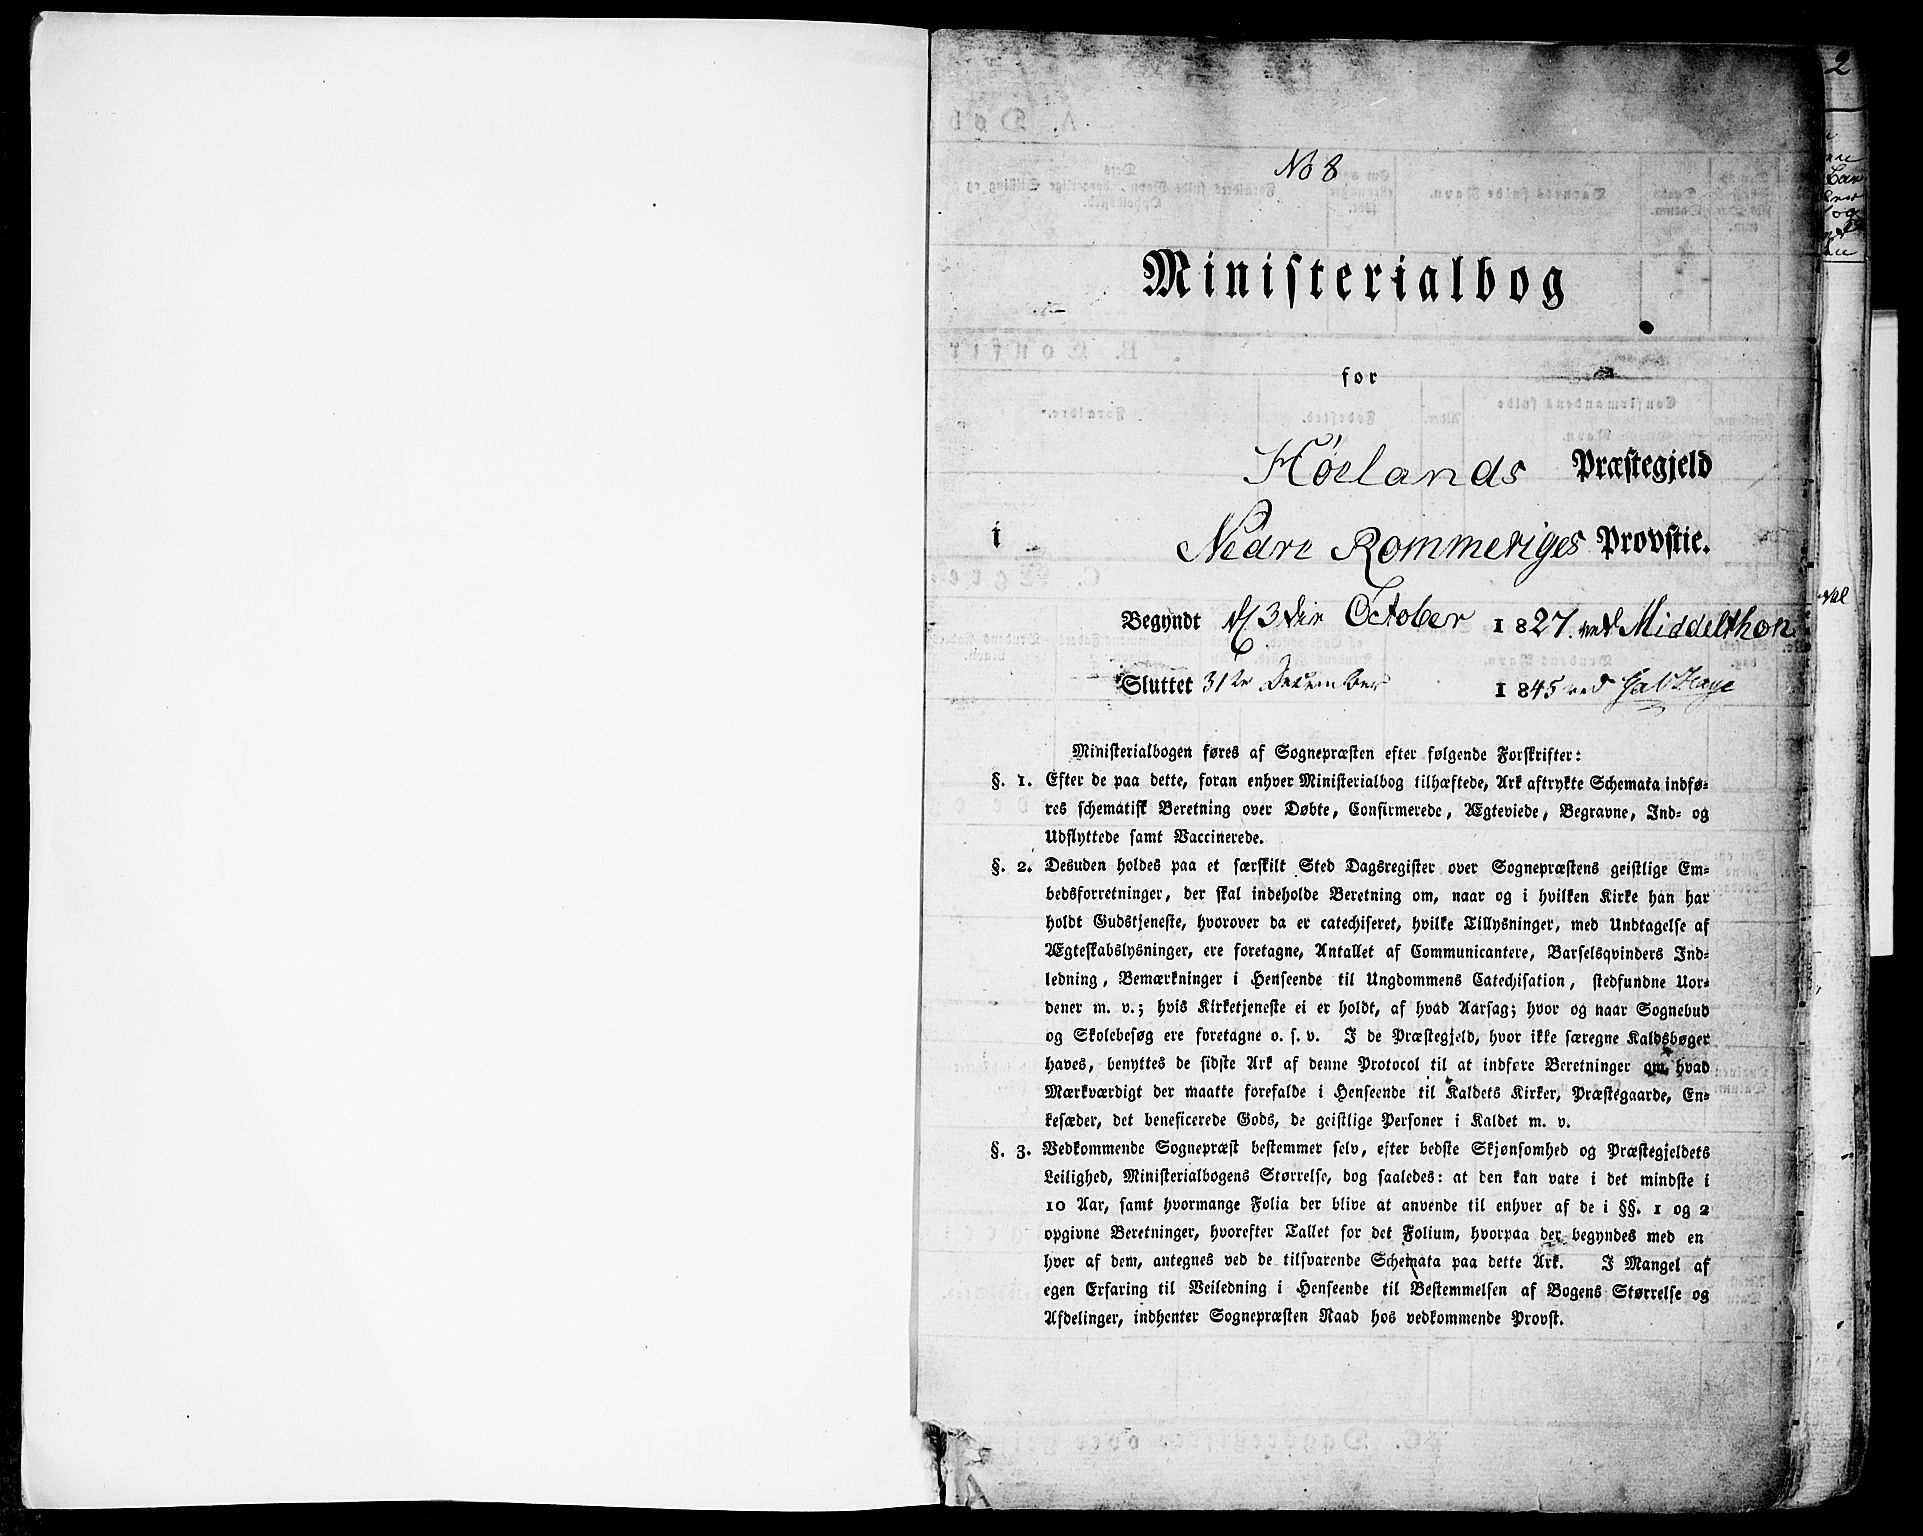 No 8
Ministerialbog
for
Høelands Præstegjeld
i Nedre Rommeriges Provstie.
Begyndt d 3die October 1827. ved Middelthon
Sluttet 31te December 1845 ved
Ministerialbogen føres af Sognepræsten efter følgende Forskrifter:
§. 1. Efter de paa dette, foran enhver Ministerialbog tilhæftede, Ark aftrykte Schemata indfø-
res schematisk Beretning over Døbte, Confirmerede, Ægteviede, Begravne, Ind- og
Udflyttede samt Vaccinerede.
§. 2. Desuden holdes paa et særskilt Sted Dagsregister over Sognepræstens geistlige Em-
bedsforretninger, der skal indeholde Beretning om, naar og i hvilken Kirke han har
holdt Gudstjeneste, hvorover da er catechiseret, hvilke Tillysninger, med Undtagelse af
Ægteskabslysninger, ere foretagne, Antallet af Communicantere, Barselqvinders Ind-
ledning, Bemærkninger i Henseende til Ungdommens Catechisation, stedfundne Uor-
dener m. v.; hvis Kirketjeneste ei er holdt, af hvad Aarsag; hvor og naar Sognebud
og Skolebesøg ere foretagne o. s. v. I de Præstegjeld, hvor ikke særegne Kaldsbøger
haves, benyttes de sidste Ark af denne Protocol til at indføre Beretninger om, hvad
Mærkværdigt der maatte forefalde i Henseende til Kaldets Kirker, Præstegaarde, En-
kesæder, det beneficerede Gods, de geistlige Personer i Kaldet m. v.
§. 3. Vedkommende Sognepræst bestemmer selv, efter bedste Skjønsomhed og Præstegjeldets
Leilighed, Ministerialbogens Størrelse, dog saaledes: at den kan vare i det mindste i
10 Aar, samt hvormange Folia der blive at anvende til enhver af de i §§. 1 og 2
opgivne Beretninger, hvorefter Tallet for det Folium, hvorpaa der begyndes med en
hver af dem, antegnes ved de tilsvarende Schemata paa dette Ark. I Mangel af
egen Erfaring til Veiledning i Henseende til Bestemmelsen af Bogens Størrelse og
Afdelinger, indhenter Sognepræsten Raad hos vedkommende Provst.
2